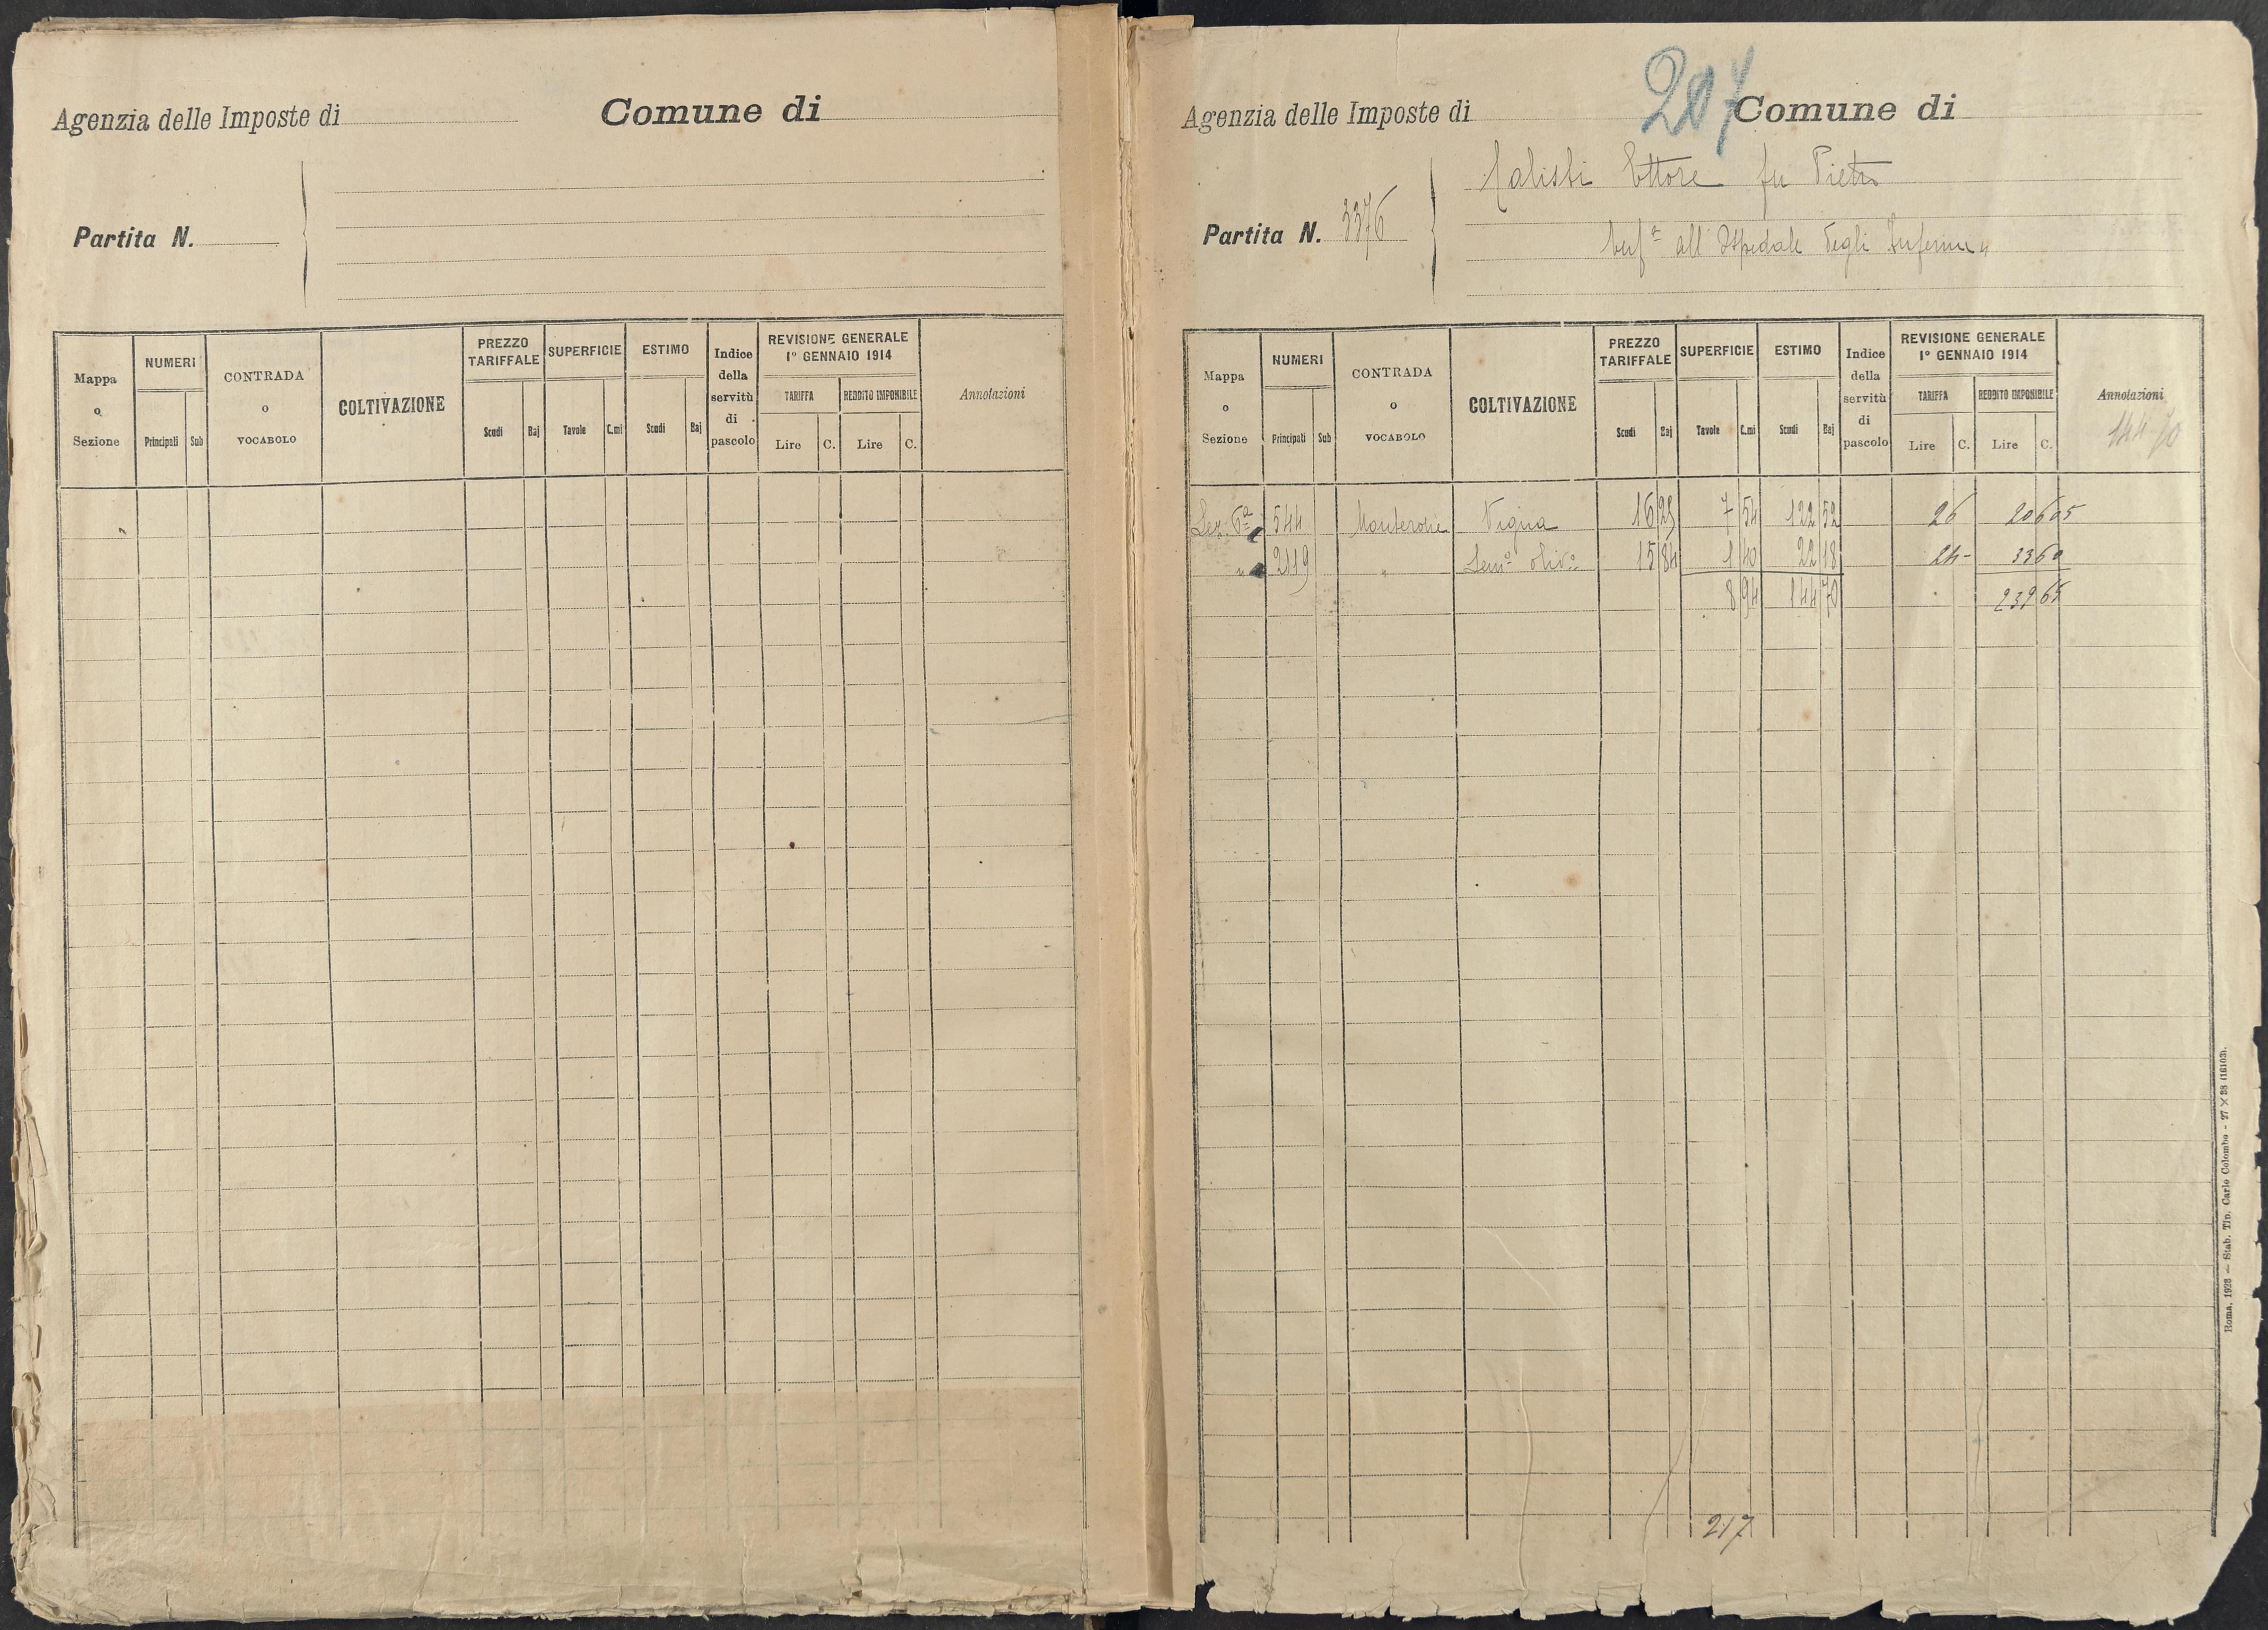 Agenzia delle Imposte di
Comune di
Partita N.
Mappa o Sezione
NUMERI
Principali
Sub
CONTRADA o VOCABOLO
COLTIVAZIONE
PREZZO TARIFFALE
Scudi
Baj
SUPERFICIE
Tavole
C.mi
ESTIMO
Scudi
Baj
Indice della servitù di pascolo
REVISIONE GENERALE
1º GENNAIO 1914
TARIFFA
REDDITO IMPONIBILE
Lire C. Lire C.
Annotazioni
207
Agenzia delle Imposte di
Comune di
Ettore fu Pietro
Partita N. 3376
all'Ospedale degli
Mappa o Sezione
NUMERI
Principali
Sub
CONTRADA o VOCABOLO
COLTIVAZIONE
PREZZO TARIFFALE
Scudi
Baj
SUPERFICIE
Tavole
C.mi
ESTIMO
Scudi
Baj
Indice della servitù di pascolo
REVISIONE GENERALE
1º GENNAIO 1914
TARIFFA
REDDITO IMPONIBILE
Lire C. Lire C.
Annotazioni
144-70
Sez. 6ª 544 Monterone Vigna 16 25 7 54 122 52 26 206 05
" 2119 " Semº olivº 15 84 1 40 22 18 24 - 33 60
8 94 144 70 239 65
217
Roma, 1923 — Stab. Tip. Carlo Colombo - 27 × 38 (16103).